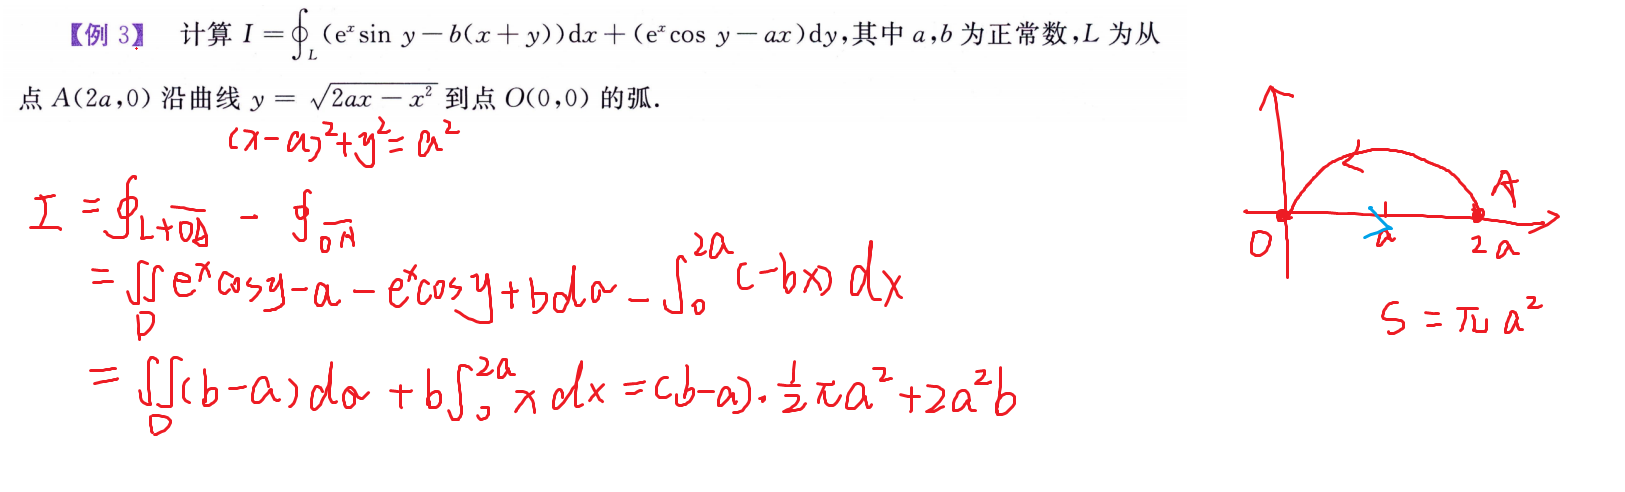 【例 3】 计算 I=∮_L (eˣsin y−b(x+y))dx+(eˣcos y−ax)dy,其中 a,b 为正常数,L 为从
点 A(2a,0) 沿曲线 y=√(2ax−x²) 到点 O(0,0) 的弧.
(x-a)²+y²=a²
I = ∮_{L+OA} - ∮_{OA}
= ∬_D eˣcosy-a-eˣcosy+bdσ - ∫₀^{2a} (-bx) dx
= ∬_D (b-a)dσ + b∫₀^{2a} x dx = (b-a)·½πa²+2a²b
A
O
a
2a
S = πa²